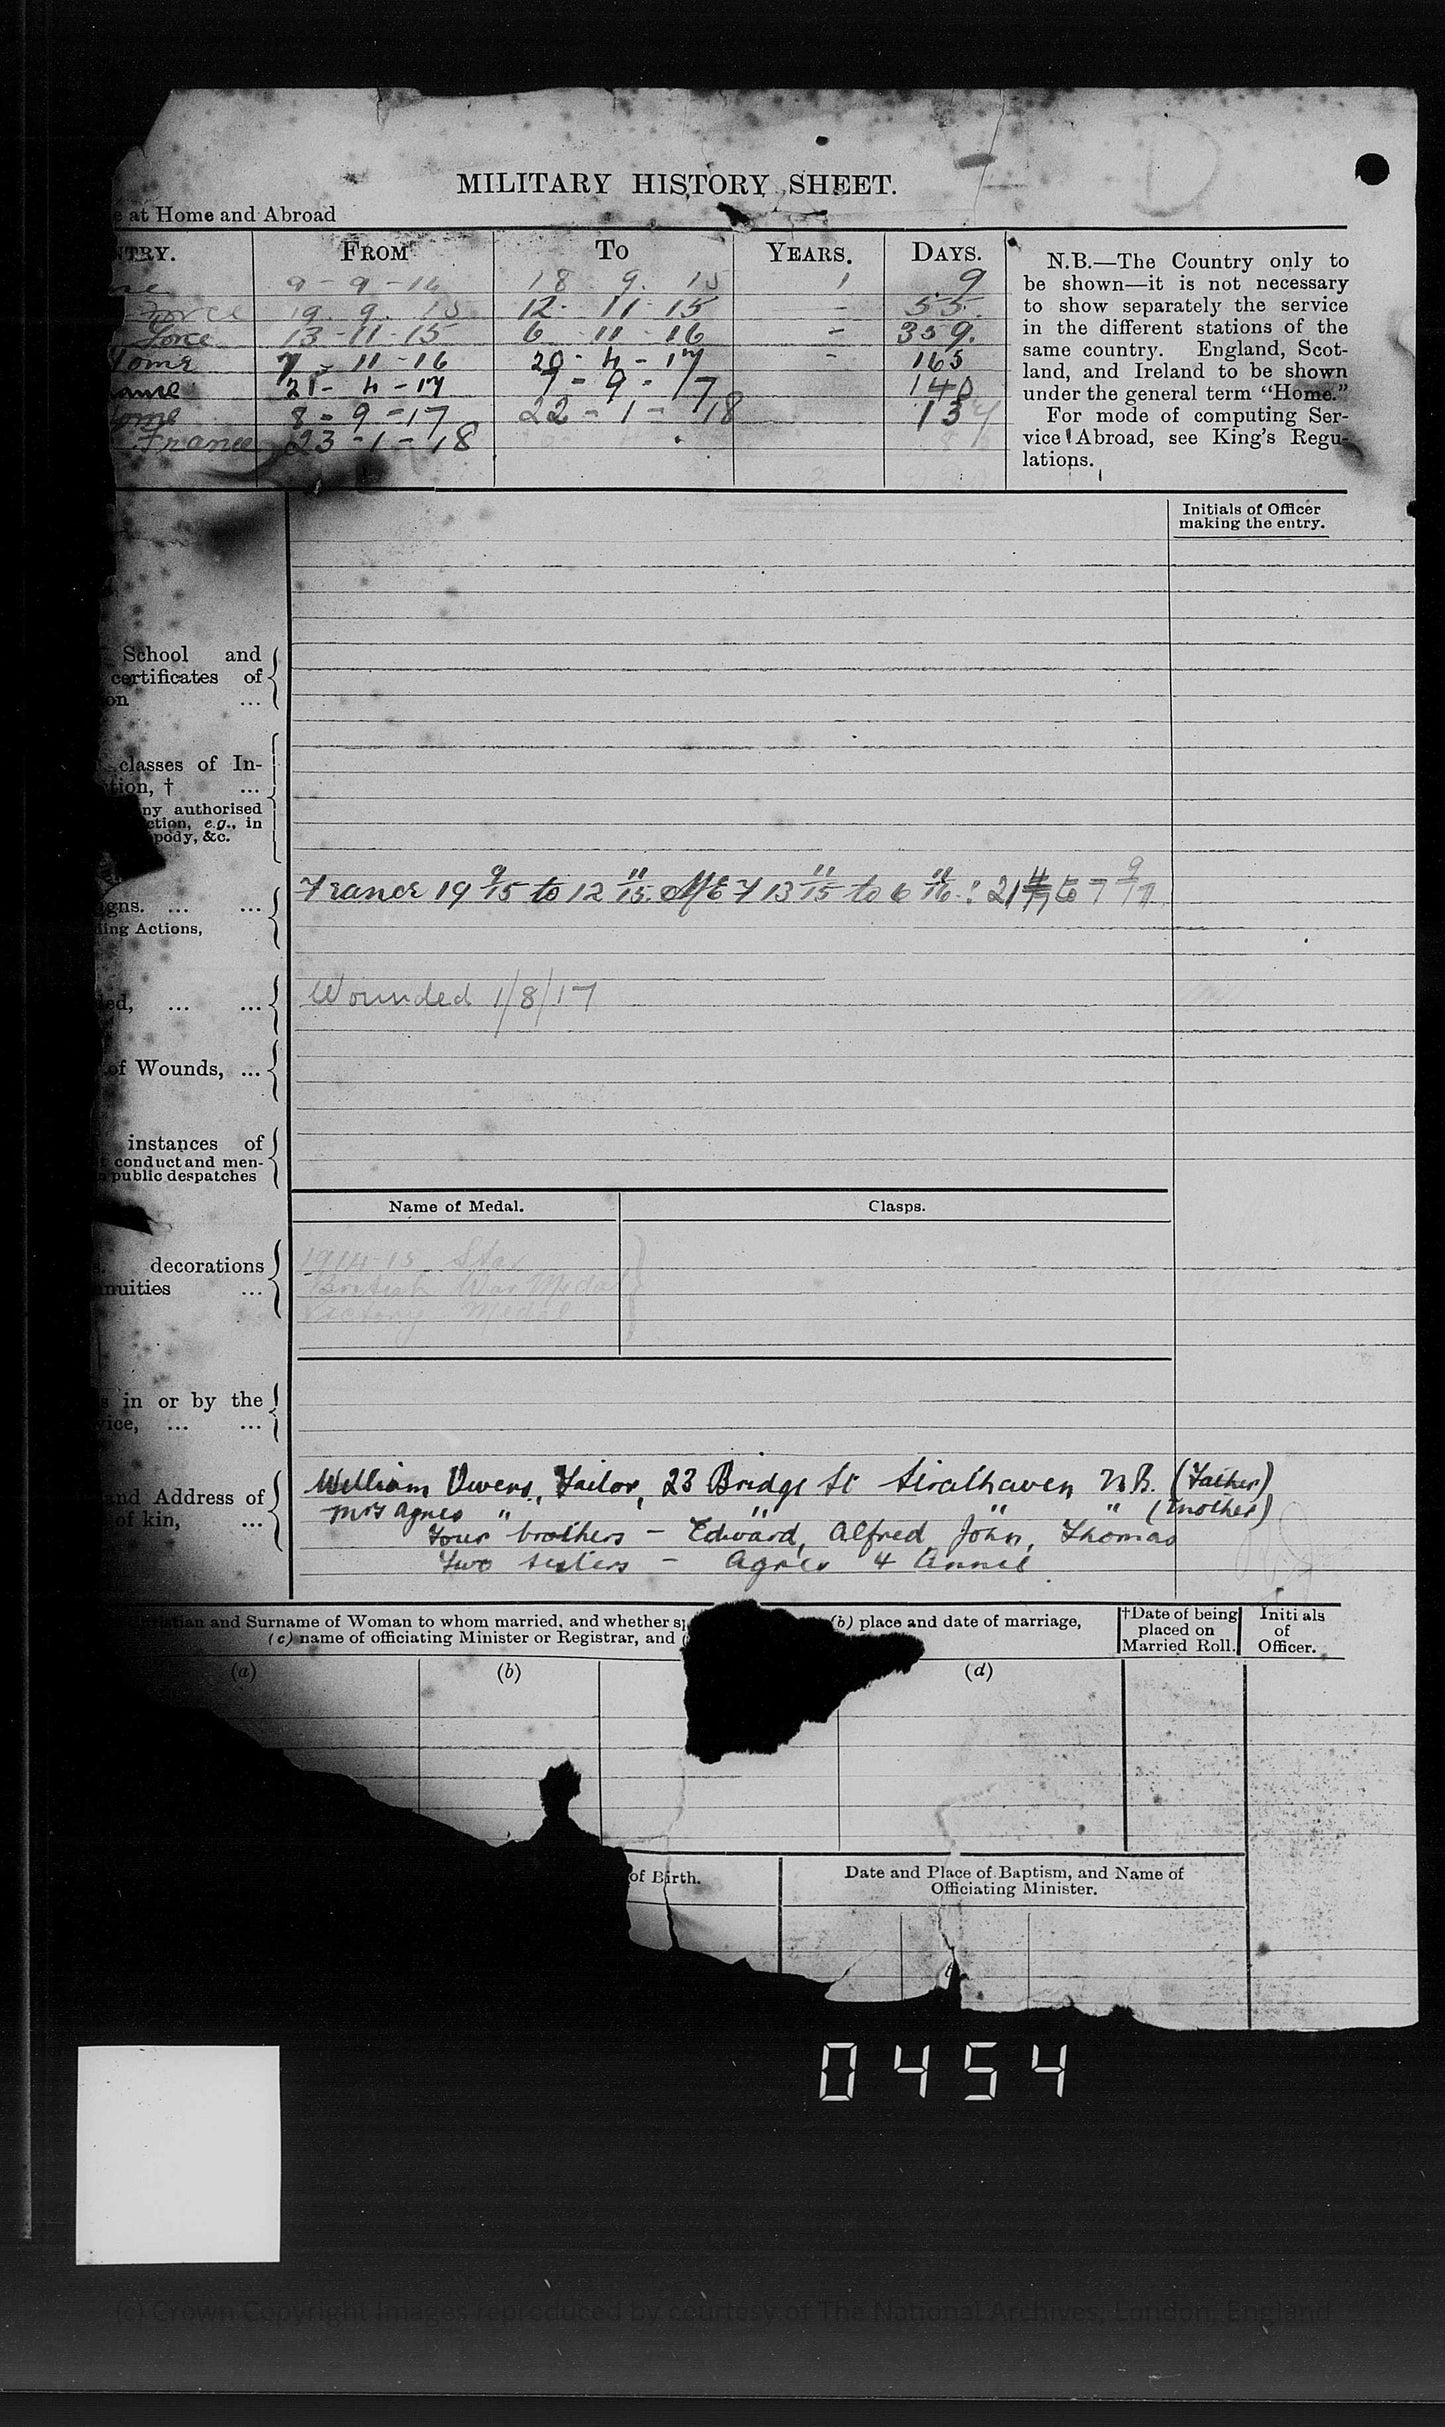 MILITARY HISTORY SHEET.
at Home and Abroad
FROM TO YEARS. DAYS.
9-9-14 18 9. 15 1 9
Force 19. 9. 15 12. 11 15 - 55.
Force 13-11-15 6 11 16 - 359.
Home 7 - 11 -16 20- 4 - 17 - 165
21- 4 -17 7 - 9 - 17 140
8 - 9 -17 22 - 1 - 18 137
France 23 -1 - 18
N.B.—The Country only to
be shown—it is not necessary
to show separately the service
in the different stations of the
same country. England, Scot-
land, and Ireland to be shown
under the general term "Home."
For mode of computing Ser-
vice Abroad, see King's Regu-
lations.
Initials of Officer
making the entry.
School and
certificates of
on ...
classes of In-
tion, † ...
ny authorised
ction, e.g., in
&c.
France 19 9/15 to 12 11/15. M E F 13 11/15 to 6 11/16 : 21 4/17 to 7 9/17
igns. ... ...
ding Actions,
Wounded 1/8/17
ed, ... ...
of Wounds, ...
instances of
conduct and men-
public despatches
Name of Medal. Clasps.
1914-15 Star
British War Medal
Victory Medal
decorations
nuities ...
in or by the
vice, ... ...
William Owens, Tailor, 23 Bridge St Strathaven N.B. (Father)
Mrs Agnes " " " " (Mother)
and Address of
of kin, ...
Four brothers - Edward, Alfred John, Thomas
Two sisters - Agnes & Annie
and Surname of Woman to whom married, and whether (b) place and date of marriage,
(c) name of officiating Minister or Registrar, and
†Date of being
placed on
Married Roll.
Initials
of
Officer.
(a) (b) (d)
of Birth.
Date and Place of Baptism, and Name of
Officiating Minister.
0454
(c) Crown Copyright Images reproduced by courtesy of The National Archives, London, England